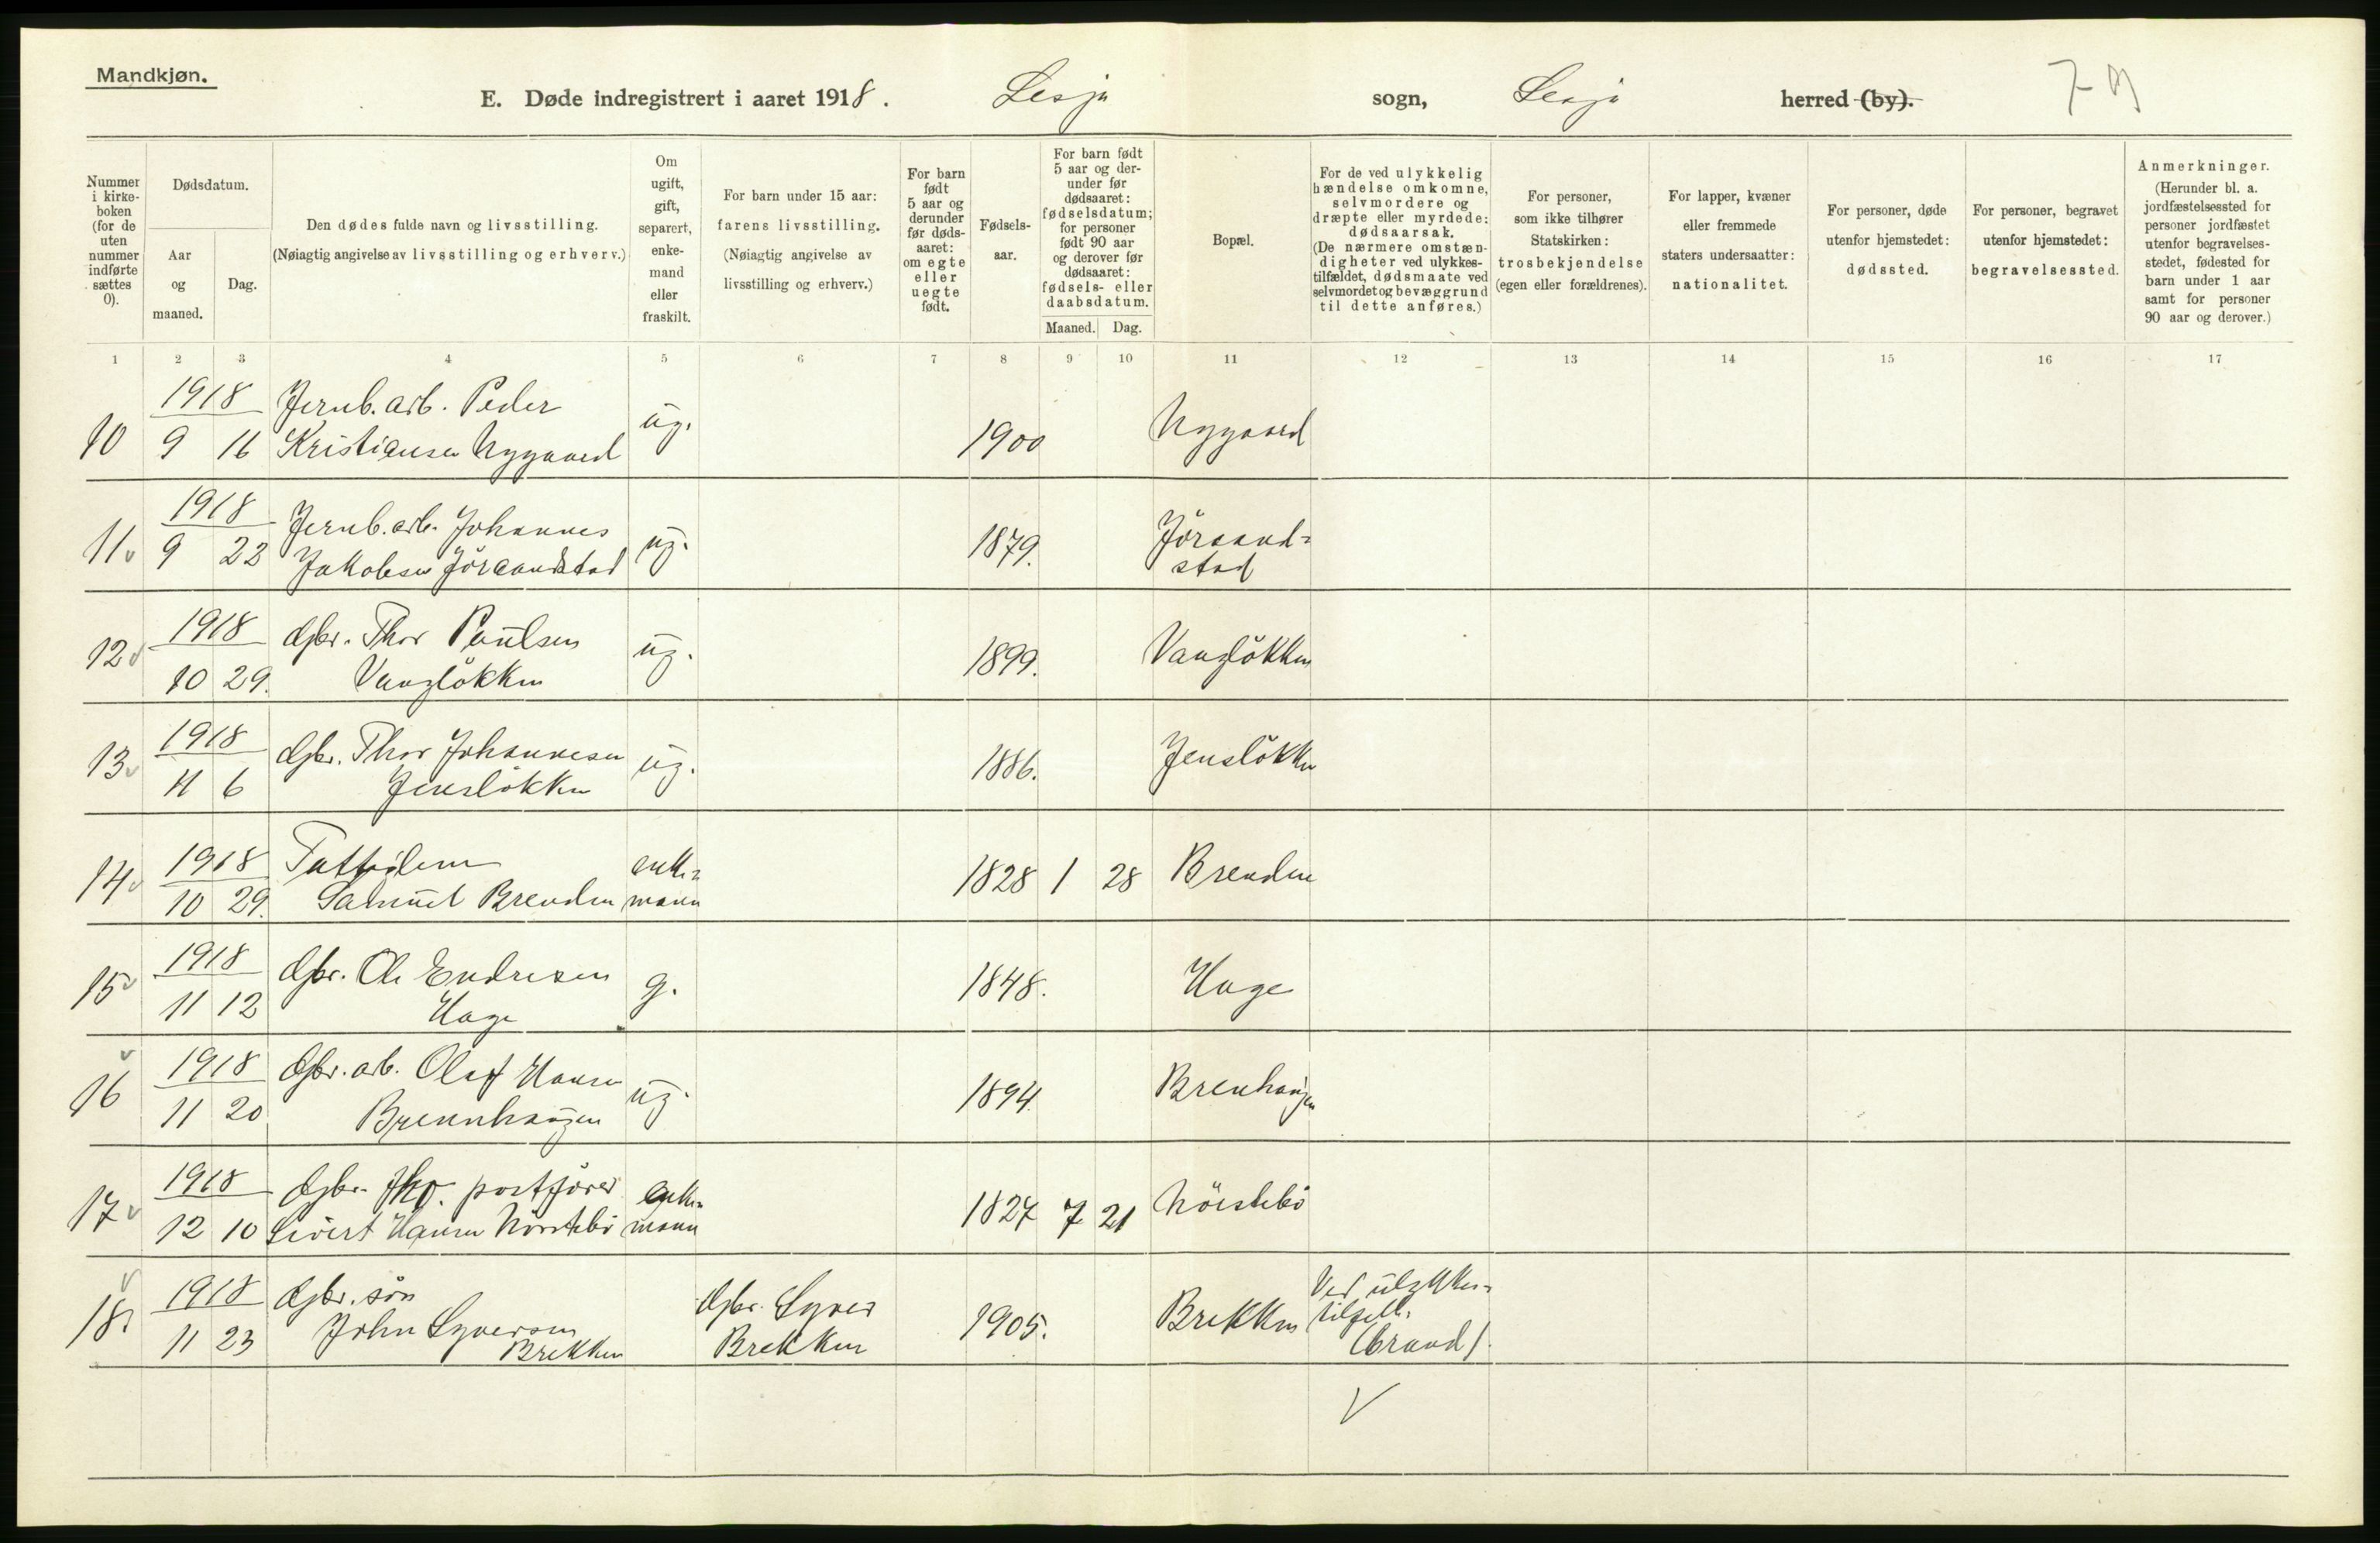 Mandkjøn.
E. Døde indregistrert i aaret 1918. Lesja sogn, Lesja herred (by).
Nummer i kirkeboken (for de uten nummer indførte sættes 0).
Dødsdatum.
Aar og maaned.
Dag.
Den dødes fulde navn og livsstilling.
(Nøiagtig angivelse av livsstilling og erhverv.)
Om ugift, gift, separert, enkemand eller fraskilt.
For barn under 15 aar:
farens livsstilling.
(Nøiagtig angivelse av livsstilling og erhverv.)
For barn født 5 aar og derunder før dødsaaret: om egte eller uegte født.
Fødselsaar.
For barn født 5 aar og derunder før dødsaaret: fødselsdatum; for personer født 90 aar og derover før dødsaaret: fødsels- eller daabsdatum.
Maaned. Dag.
Bopæl.
For de ved ulykkelig hændelse omkomne, selvmordere og dræpte eller myrdede: dødsaarsak.
(De nærmere omstændigheter ved ulykkestilfældet, dødsmaate ved selvmordet og bevæggrund til dette anføres.)
For personer, som ikke tilhører Statskirken: trosbekjendelse (egen eller forældrenes).
For lapper, kvæner eller fremmede staters undersaatter: nationalitet.
For personer, døde utenfor hjemstedet: dødssted.
For personer, begravet utenfor hjemstedet: begravelsessted.
Anmerkninger.
(Herunder bl. a. jordfæstelsessted for personer jordfæstet utenfor begravelsesstedet, fødested for barn under 1 aar samt for personer 90 aar og derover.)
1 2 3 4 5 6 7 8 9 10 11 12 13 14 15 16 17
1918 Jernb. arb. Peder
10 9 16 Kristiansen Nygaard ug. 1900 Nygaard
1918 Jernb. arb. Johannes
11 9 22 Jakobsen Jöraandstad ug. 1879. Jöraand=
stad
1918 Gbr. Thor Paulsen
12 10 29. Vangløkken ug. 1899. Vangløkken
1918 Gbr. Thor Johannesen
13 11 6 Jensløkken ug. 1886. Jensløkken
1918 enke=
14 10 29. Samuel Brenden mann 1828 1 28 Brenden
1918 Gbr. Ole Endresen
15 11 12 Hage g. 1848. Hage
1918 Gbr. arb. Olaf Hansen
16 11 20 Brennhaugen ug. 1894. Brenhaugen
1918 Gbr. postförer enke=
17 12 10 Sivert Hansen Nörstebö mann 1827 7 21 Nörstebö
1918 Gbr. sön Gbr. Syver Ved ulykkes=
18. 11 23 John Syversen Brekken Brekken 1905. Brekken tilfelle
(brand).